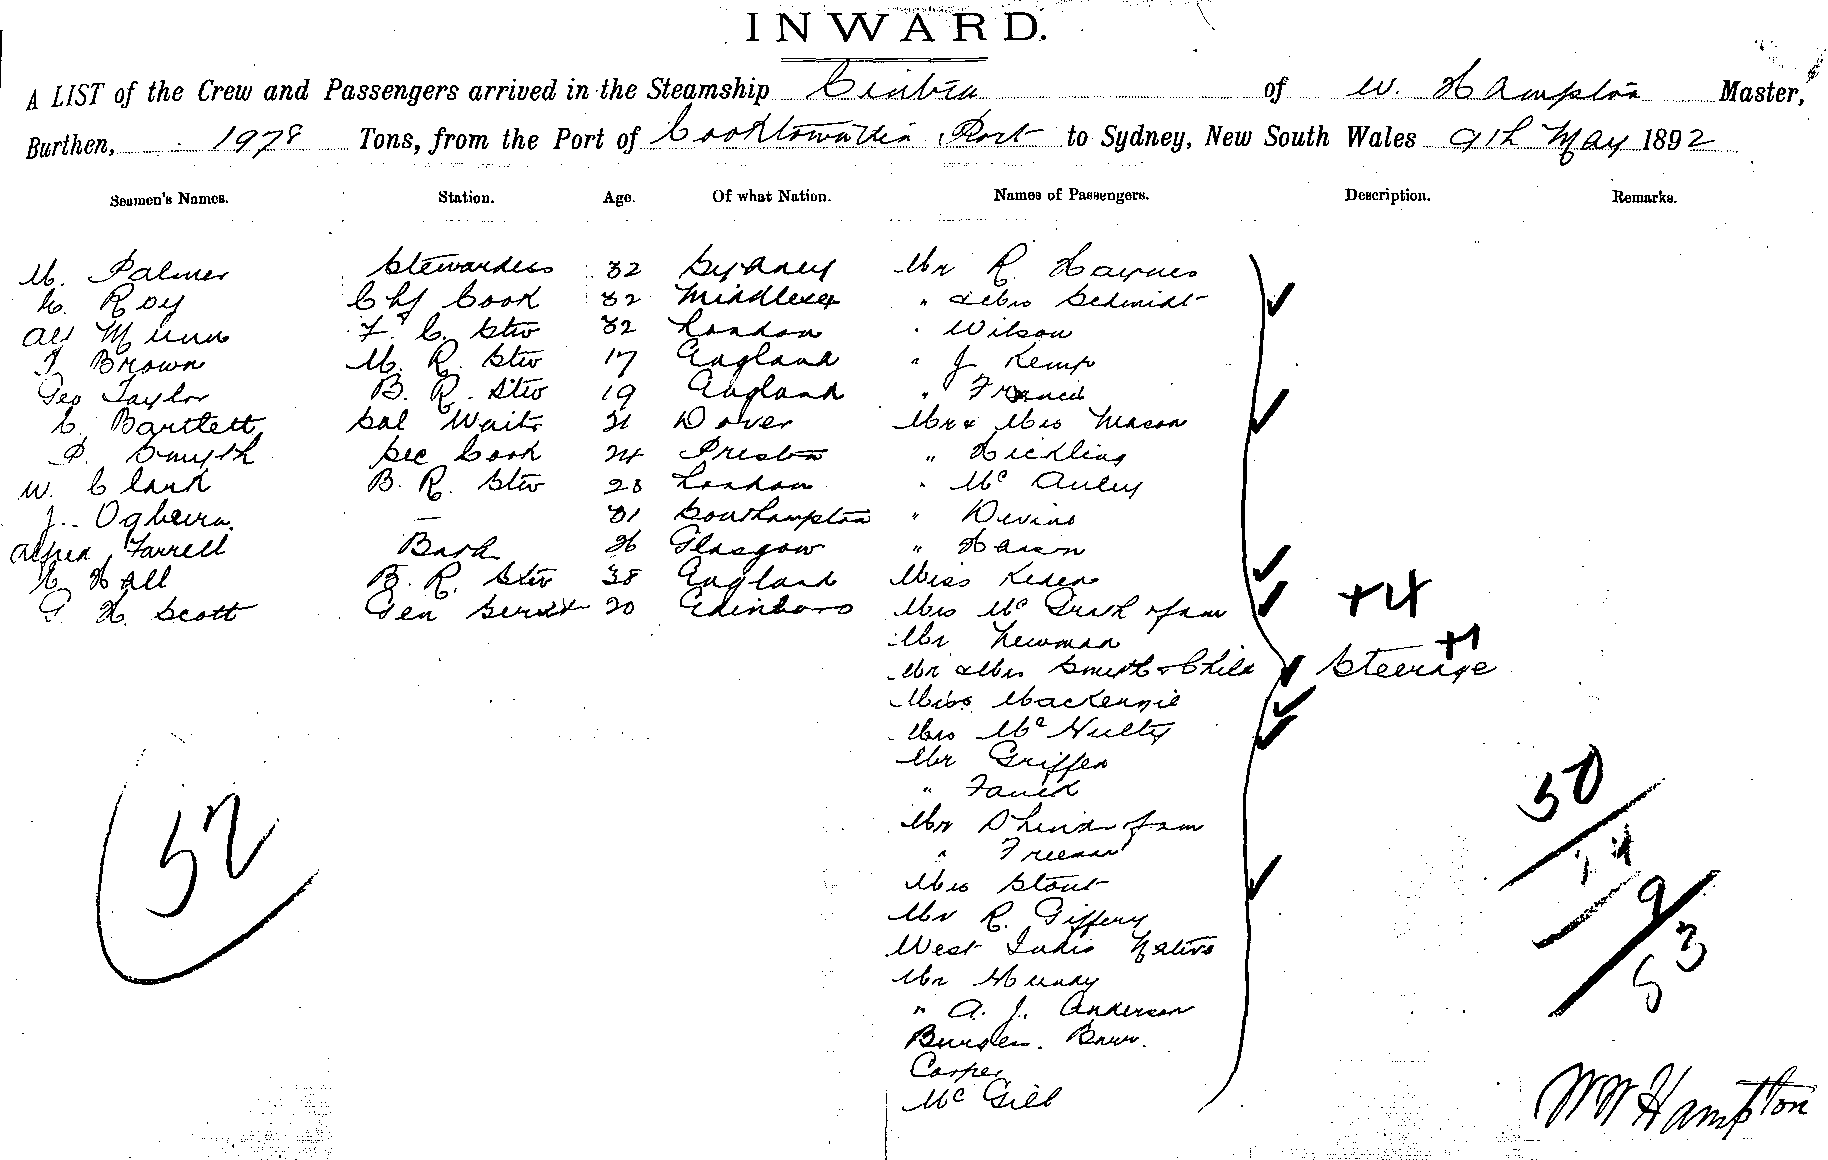 INWARD.
A LIST of the Crew and Passengers arrived in the Steamship Cintra of W. Hampton Master,
Burthen, 1978 Tons, from the Port of Cooktown via Port to Sydney, New South Wales 9th May 1892
Seamen's Names. Station. Age. Of what Nation. Names of Passengers. Description. Remarks.
M. Palmer Stewardess 32 Sydney Mr R. Haynes
Roy Chf Cook 32 Middlesex " & Mrs Schmidt
Alf Munn F. C. Stw 32 London " Wilson
Brown M. R. Stw 17 England " J Kemp
Geo Taylor B. R. Stw 19 England " Francis
C. Bartlett Sal Waitr 21 Dover Mr & Mrs Mason
P. Smyth Sec Cook 24 Preston " Hickling
W. Clark B. R. Stw 28 London " Mc Auley
J. — 31 Southampton " Devine
Alfred Farrell 26 Glasgow "
Hall B. R. Stw 38 England Miss
G H. Scott Gen Servt 20 Edinboro Mrs Mc Grath & fam +4
Mr Newman
+1
Mr & Mrs Smyth & Child Steerage
Miss Mackenzie
Mrs Mc Nulty
Mr Griffen
"
Mr & fam
" Freeman
Mrs Stout
Mr R. Giffery
West Indis Native
Mr Mundy
" A. J. Anderson
Barr.
Casper
Mc Gill
52
50
9
53
WW Hampton